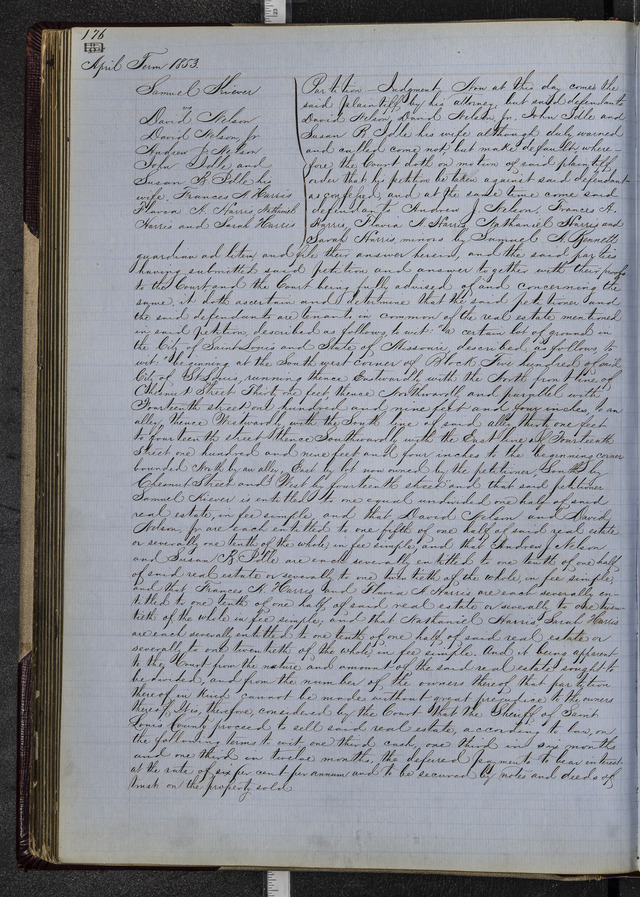 176
April Term 1853.
Samuel Kiever
vs
David Nelson
David Nelson, Jr
Andrew J Nelson
John Idle and
Susan R Idle his
wife, Frances A Harris
Flavia A. Harris Nathaniel
Harris and Sarah Harris
Partition - Judgment, Now at this day comes the
said plaintiff by his attorney but said defendants
David Nelson, David Nelson jr. John Idle and
Susan R Idle his wife although duly warned
and called come not, but make default, where
fore the Court doth on motion of said plaintiff
order that by petition be taken against said defendants
as confessed, and at the same time come said
defendants Andrew J Nelson, Frances A.
Harris, Flavia A Harris, Nathaniel Harris and
Sarah Harris, minors by Samuel A Bennett
guardian ad litem and file their answer herein, and the said parties
having submitted said petition and answer together with their proofs
to the Court and the Court being fully advised of and concerning the
same, it doth ascertain and determine that the said petitioner and
the said defendants are tenants in common of the real estate mentioned
in said petition, described as follows to wit "A certain lot of ground in
the City of Saint Louis and State of Missouri described as follows to
wit: Beginning at the South west corner of Block Five hundred of said
City of St Louis, running thence Eastwardly with the North front line of
Chesnut Street Thirty one feet, thence Northwardly and parallel with
Fourteenth street one hundred and nine feet and four inches, to an
alley, thence Westwardly with the South line of said alley thirty one feet
to fourteenth street, thence Southwardly with the East line of Fourteenth
street one hundred and nine feet and four inches to the beginning corner
bounded North by an alley, East by lot now owned by the petitioner South by
Chesnut Street and West by fourteenth street and that said petitioner
Samuel Kiever is entitled to one equal undivided one half of said
real estate, in fee simple, and that David Nelson and David
Nelson, Jr are each entitled to one fifth of one half of said real estate
or severally one tenth of the whole, in fee simple, and that Andrew J Nelson
and Susan R Idle are each severally entitled to one tenth of one half
of said real estate or severally to one twentieth of the whole, in fee simple,
and that Frances A. Harris and Flavia A Harris are each severally en-
titled to one tenth of one half of said real estate or severally to one twen
tieth of the whole in fee simple, and that Nathaniel Harris & Sarah Harris
are each severally entitled to one tenth of one half of said real estate or
severally to one twentieth of the whole in fee simple. And it being apparent
to the Court from the nature and amount of the said real estate sought to
be divided, and from the number of the owners thereof that partition
thereof in kind cannot be made without great prejudice to the owners
thereof. It is, therefore, considered by the Court that the Sheriff of Saint
Louis County proceed to sell said real estate, according to law, on
the following terms to wit, one third cash, one third in six months
and one third in twelve months, the deferred payments to bear interest
at the rate of six per cent per annum and to be secured by notes and deeds of
trust on the property sold.